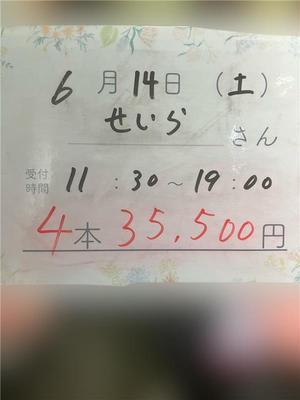 6月14日（土）
せいらさん
受付時間 11:30～19:00
4本 35,500円